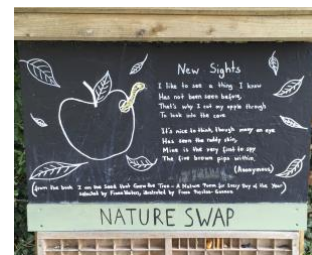 New Sights
I like to see a thing I know
Has not been seen before,
That's why I cut my apple through
To look into the core.
It's nice to think, though many an eye
Has seen the ruddy skin,
Mine is the very first to spy
The five brown pips within.
(Anonymous)
(from the book I am the Seed that Grew the Tree - A Nature Poem for Every Day of the Year)
selected by Fiona Waters, illustrated by Frann Preston-Gannon
NATURE SWAP